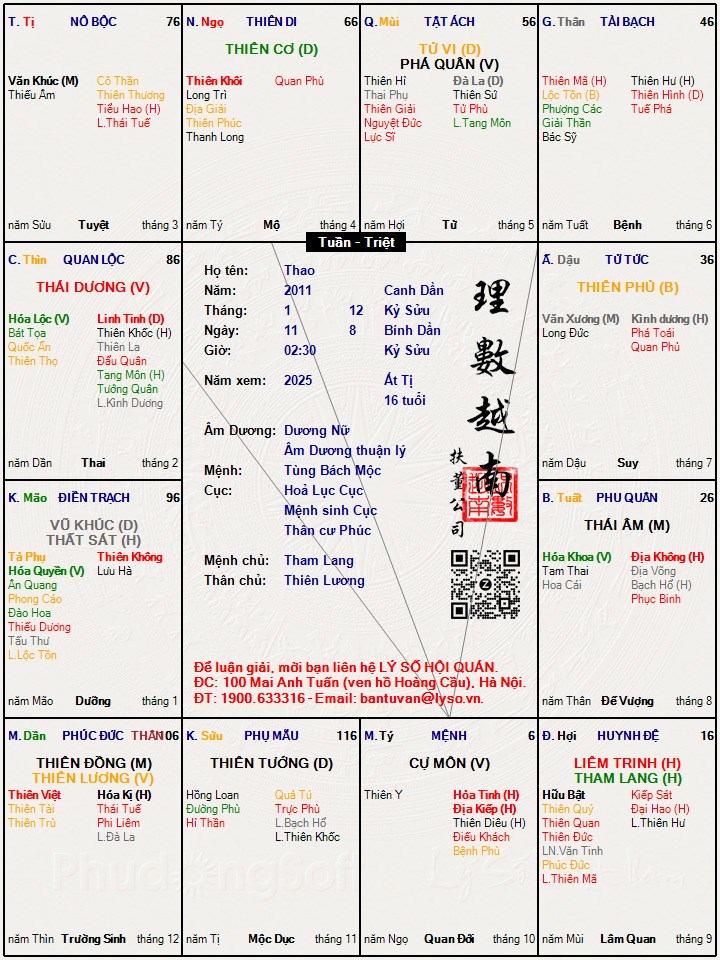 T. Tị NÔ BỘC 76
Văn Khúc (M) Cô Thần
Thiếu Âm Thiên Thương
Tiểu Hao (H)
L.Thái Tuế
năm Sửu Tuyệt tháng 3
N. Ngọ THIÊN DI 66
THIÊN CƠ (D)
Thiên Khôi Quan Phù
Long Trì
Địa Giải
Thiên Phúc
Thanh Long
năm Tý Mộ tháng 4
Q. Mùi TẬT ÁCH 56
TỬ VI (D)
PHÁ QUÂN (V)
Thiên Hỉ Đà La (D)
Thai Phụ Thiên Sứ
Thiên Giải Tử Phù
Nguyệt Đức L.Tang Môn
Lực Sĩ
năm Hợi Tử tháng 5
G. Thân TÀI BẠCH 46
Thiên Mã (H) Thiên Hư (H)
Lộc Tồn (B) Thiên Hình (D)
Phượng Các Tuế Phá
Giải Thần
Bác Sỹ
năm Tuất Bệnh tháng 6
Tuần - Triệt
C. Thìn QUAN LỘC 86
THÁI DƯƠNG (V)
Hóa Lộc (V) Linh Tinh (D)
Bát Tọa Thiên Khốc (H)
Quốc Ấn Thiên La
Thiên Thọ Đẩu Quân
Tang Môn (H)
Tướng Quân
L.Kình Dương
năm Dần Thai tháng 2
Họ tên: Thao
Năm: 2011 Canh Dần
Tháng: 1 12 Kỷ Sửu
Ngày: 11 8 Bính Dần
Giờ: 02:30 Kỷ Sửu
Năm xem: 2025 Ất Tị
16 tuổi
Âm Dương: Dương Nữ
Âm Dương thuận lý
Mệnh: Tùng Bách Mộc
Cục: Hoả Lục Cục
Mệnh sinh Cục
Thân cư Phúc
Mệnh chủ: Tham Lang
Thân chủ: Thiên Lương
理數越南
扶董公司
Để luận giải, mời bạn liên hệ LÝ SỐ HỘI QUÁN.
ĐC: 100 Mai Anh Tuấn (ven hồ Hoàng Cầu), Hà Nội.
ĐT: 1900.633316 - Email: bantuvan@lyso.vn.
Ấ. Dậu TỬ TỨC 36
THIÊN PHỦ (B)
Văn Xương (M) Kình dương (H)
Long Đức Phá Toái
Quan Phủ
năm Dậu Suy tháng 7
K. Mão ĐIỀN TRẠCH 96
VŨ KHÚC (D)
THẤT SÁT (H)
Tả Phụ Thiên Không
Hóa Quyền (V) Lưu Hà
Ân Quang
Phong Cáo
Đào Hoa
Thiếu Dương
Tấu Thư
L.Lộc Tồn
năm Mão Dưỡng tháng 1
B. Tuất PHU QUÂN 26
THÁI ÂM (M)
Hóa Khoa (V) Địa Không (H)
Tam Thai Địa Võng
Hoa Cái Bạch Hổ (H)
Phục Binh
năm Thân Đế Vượng tháng 8
M. Dần PHÚC ĐỨC THÂN 106
THIÊN ĐỒNG (M)
THIÊN LƯƠNG (V)
Thiên Việt Hóa Kị (H)
Thiên Tài Thái Tuế
Thiên Trù Phi Liêm
L.Đà La
năm Thìn Trường Sinh tháng 12
K. Sửu PHỤ MẪU 116
THIÊN TƯỚNG (D)
Hồng Loan Quả Tú
Đường Phù Trực Phù
Hỉ Thần L.Bạch Hổ
L.Thiên Khốc
năm Tị Mộc Dục tháng 11
M. Tý MỆNH 6
CỰ MÔN (V)
Thiên Y Hỏa Tinh (H)
Địa Kiếp (H)
Thiên Diêu (H)
Điếu Khách
Bệnh Phù
năm Ngọ Quan Đới tháng 10
Đ. Hợi HUYNH ĐỆ 16
LIÊM TRINH (H)
THAM LANG (H)
Hữu Bật Kiếp Sát
Thiên Quý Đại Hao (H)
Thiên Quan L.Thiên Hư
Thiên Đức
LN.Văn Tinh
Phúc Đức
L.Thiên Mã
năm Mùi Lâm Quan tháng 9